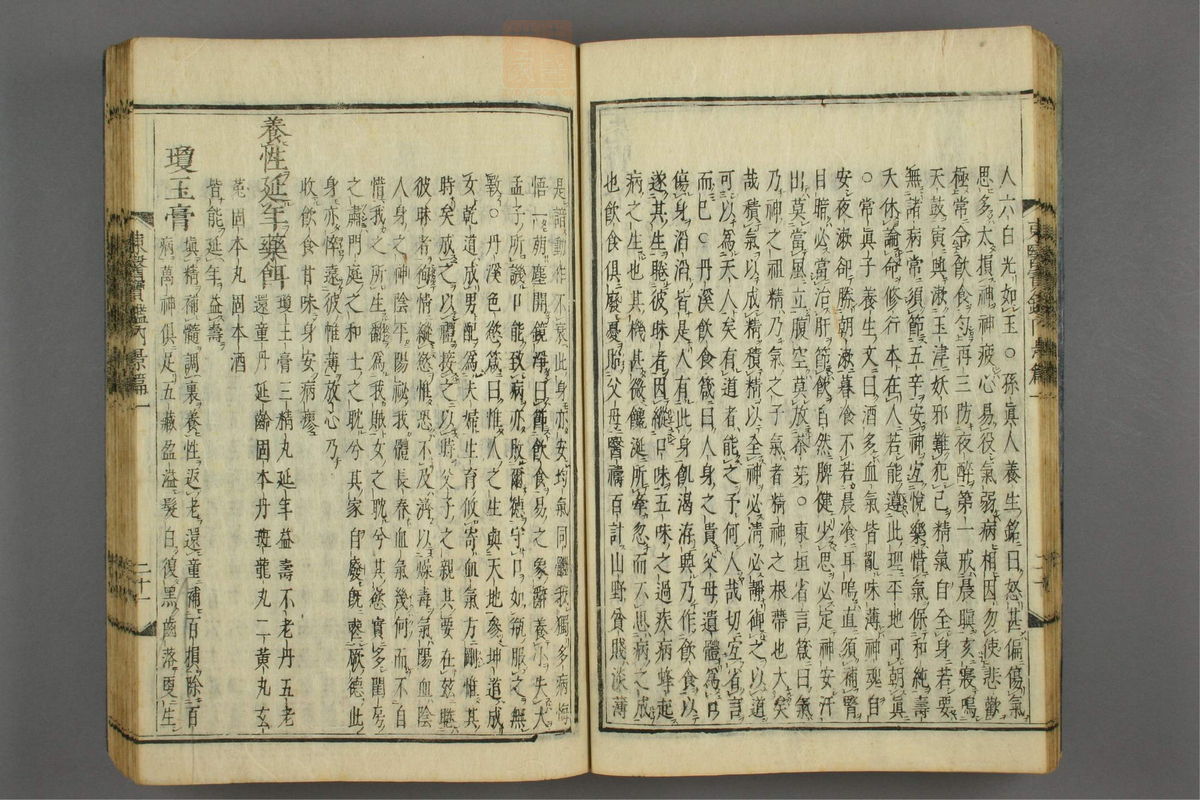 人六白光如玉○孫眞人養生銘曰怒甚偏傷氣
思多太損神神疲心易役氣弱病相因勿使悲歡
極常令飲食勻再三防夜醉第一戒晨嗔亥寢鳴
天鼓寅興漱玉津妖邪難犯己精氣自全身若要
無諸病常須節五辛安神宜悅樂惜氣保和純壽
夭休論命修行本在人若能遵此理平地可朝眞
○常眞子養生文曰酒多血氣皆亂味薄神魂自
安夜漱卻勝朝漱暮食不若晨飡耳鳴直須補腎
目暗必當治肝節飮自然脾健少思必定神安汗
出莫當風立腹空莫放茶芽○東垣省言箴曰氣
乃神之祖精乃氣之子氣者精神之根蔕也大矣
哉積氣以成精積精以全神必淸必靜御之以道
可以爲天人矣有道者能之予何人哉切宜省言
而已○丹溪飮食箴曰人身之貴父母遺體爲口
傷身滔滔皆是人有此身飢渴洊興乃作飮食以
遂其生睠彼昧者因縱口味五味之過疾病蜂起
病之生也其機甚微饞涎所牽忽而不思病之成
也飮食俱廢憂貽父母醫禱百計山野貧賤淡薄
是諳動作不衰此身亦安均氣同體我獨多病悔
悟一萌塵開鏡淨曰節飮食易之象辭養小失大
孟子所譏口能致病亦敗爾德守口如甁服之無
斁○丹溪色慾箴曰惟人之生與天地參坤道成
女乾道成男配爲夫婦生育攸寄血氣方剛惟其
時矣成之以禮接之以時父子之親其要在玆睠
彼昧者徇情縱慾惟恐不及濟以燥毒氣陽血陰
人身之神陰平陽秘我體長春血氣幾何而不自
惜我之所生飜爲我賊女之耽兮其慾實多閨房
之肅門庭之和士之耽兮其家自廢旣喪厥德此
身亦悴遠彼帷薄放心乃
收飮食甘味身安病瘳
養性延年藥餌
瓊玉膏三精丸延年益壽不老丹五老
還童丹延齡固本丹班龍丸二黃丸玄
菟固本丸固本酒
皆能延年益壽
瓊玉膏
塡精補髓調眞養性返老還童補百損除百
病萬神俱足五藏盈溢髮白復黑齒落更生
東醫寶鑑內景篇一
二十一